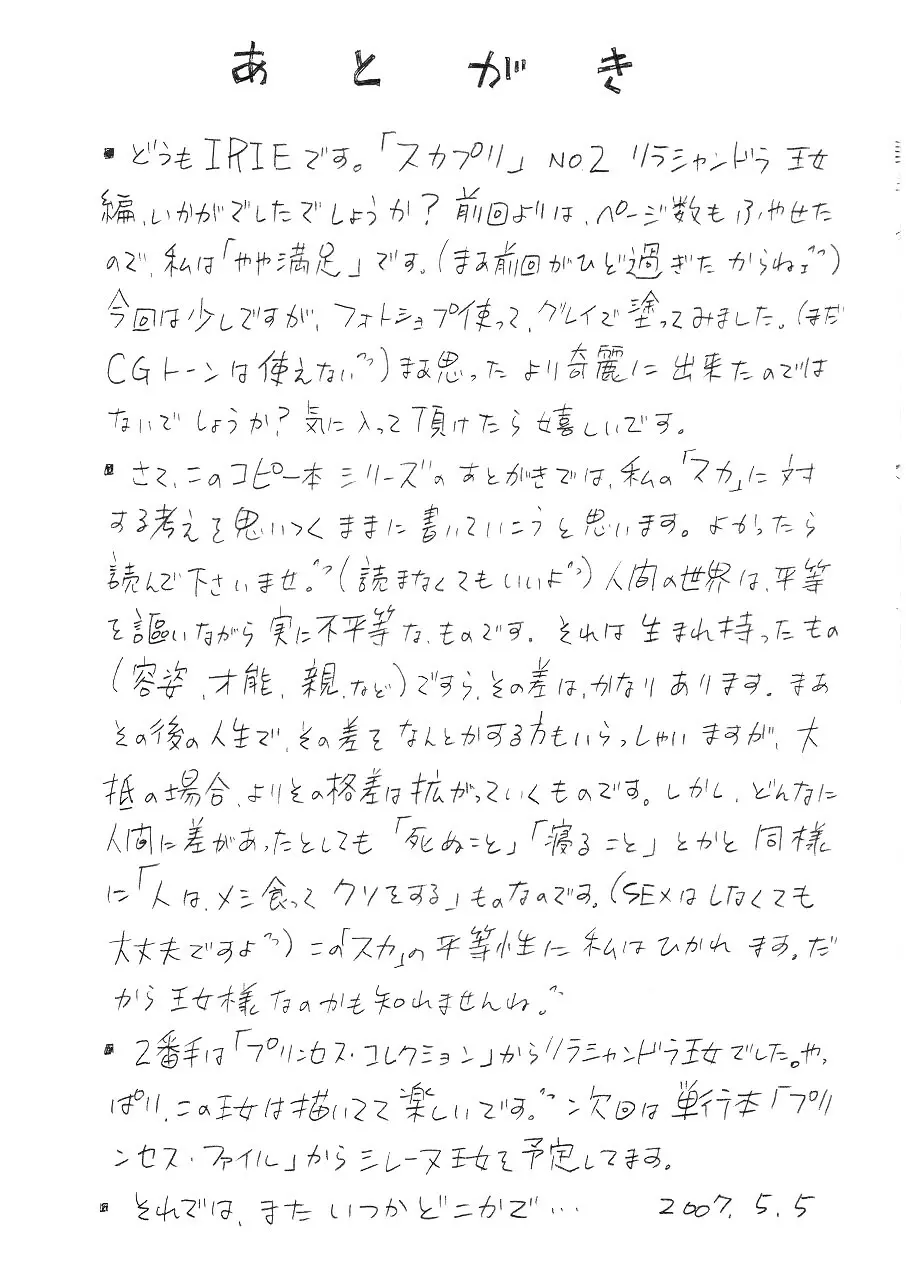 あとがき
▪どうもIRIEです。「スカプリ」NO.2 リラシャンドラ王女
編、いかがでしたでしょうか?前回よりは、ページ数もふやせた
ので、私は「やや満足」です。(まあ前回がひど過ぎたからねェ^^)
今回は少しですが、フォトショプ使って、グレイで塗ってみました。(まだ
CGトーンは使えない^^)まあ思ったより奇麗に出来たのでは
ないでしょうか?気に入って頂けたら嬉しいです。
▪さて、このコピー本シリーズのあとがきでは、私の「スカ」に対
する考えを思いつくままに書いていこうと思います。よかったら
読んで下さいませ。^^(読まなくてもいいよ^^)人間の世界は、平等
を謳いながら実に不平等な、ものです。それは生まれ持ったもの
(容姿、才能、親、など)ですら、その差は、かなりあります。まあ
その後の人生で、その差をなんとかする方もいらっしゃいますが、大
抵の場合、よりその格差は拡がっていくものです。しかし、どんなに
人間に差があったとしても「死ぬこと」「寝ること」とかと同様
に「人は、メシ食ってクソをする」ものなのです。(SEXはしなくても
大丈夫ですよ^^)この「スカ」の平等性に私はひかれます。だ
から王女様なのかも知れませんね。^^
▪2番手は「プリンセス・コレクション」からリラシャンドラ王女でした。やっ
ぱり、この王女は描いてて楽しいです。^^次回は単行本「プリ
ンセス・ファイル」からミレーヌ王女を予定してます。
▪それでは、またいつかどこかで… 2007.5.5